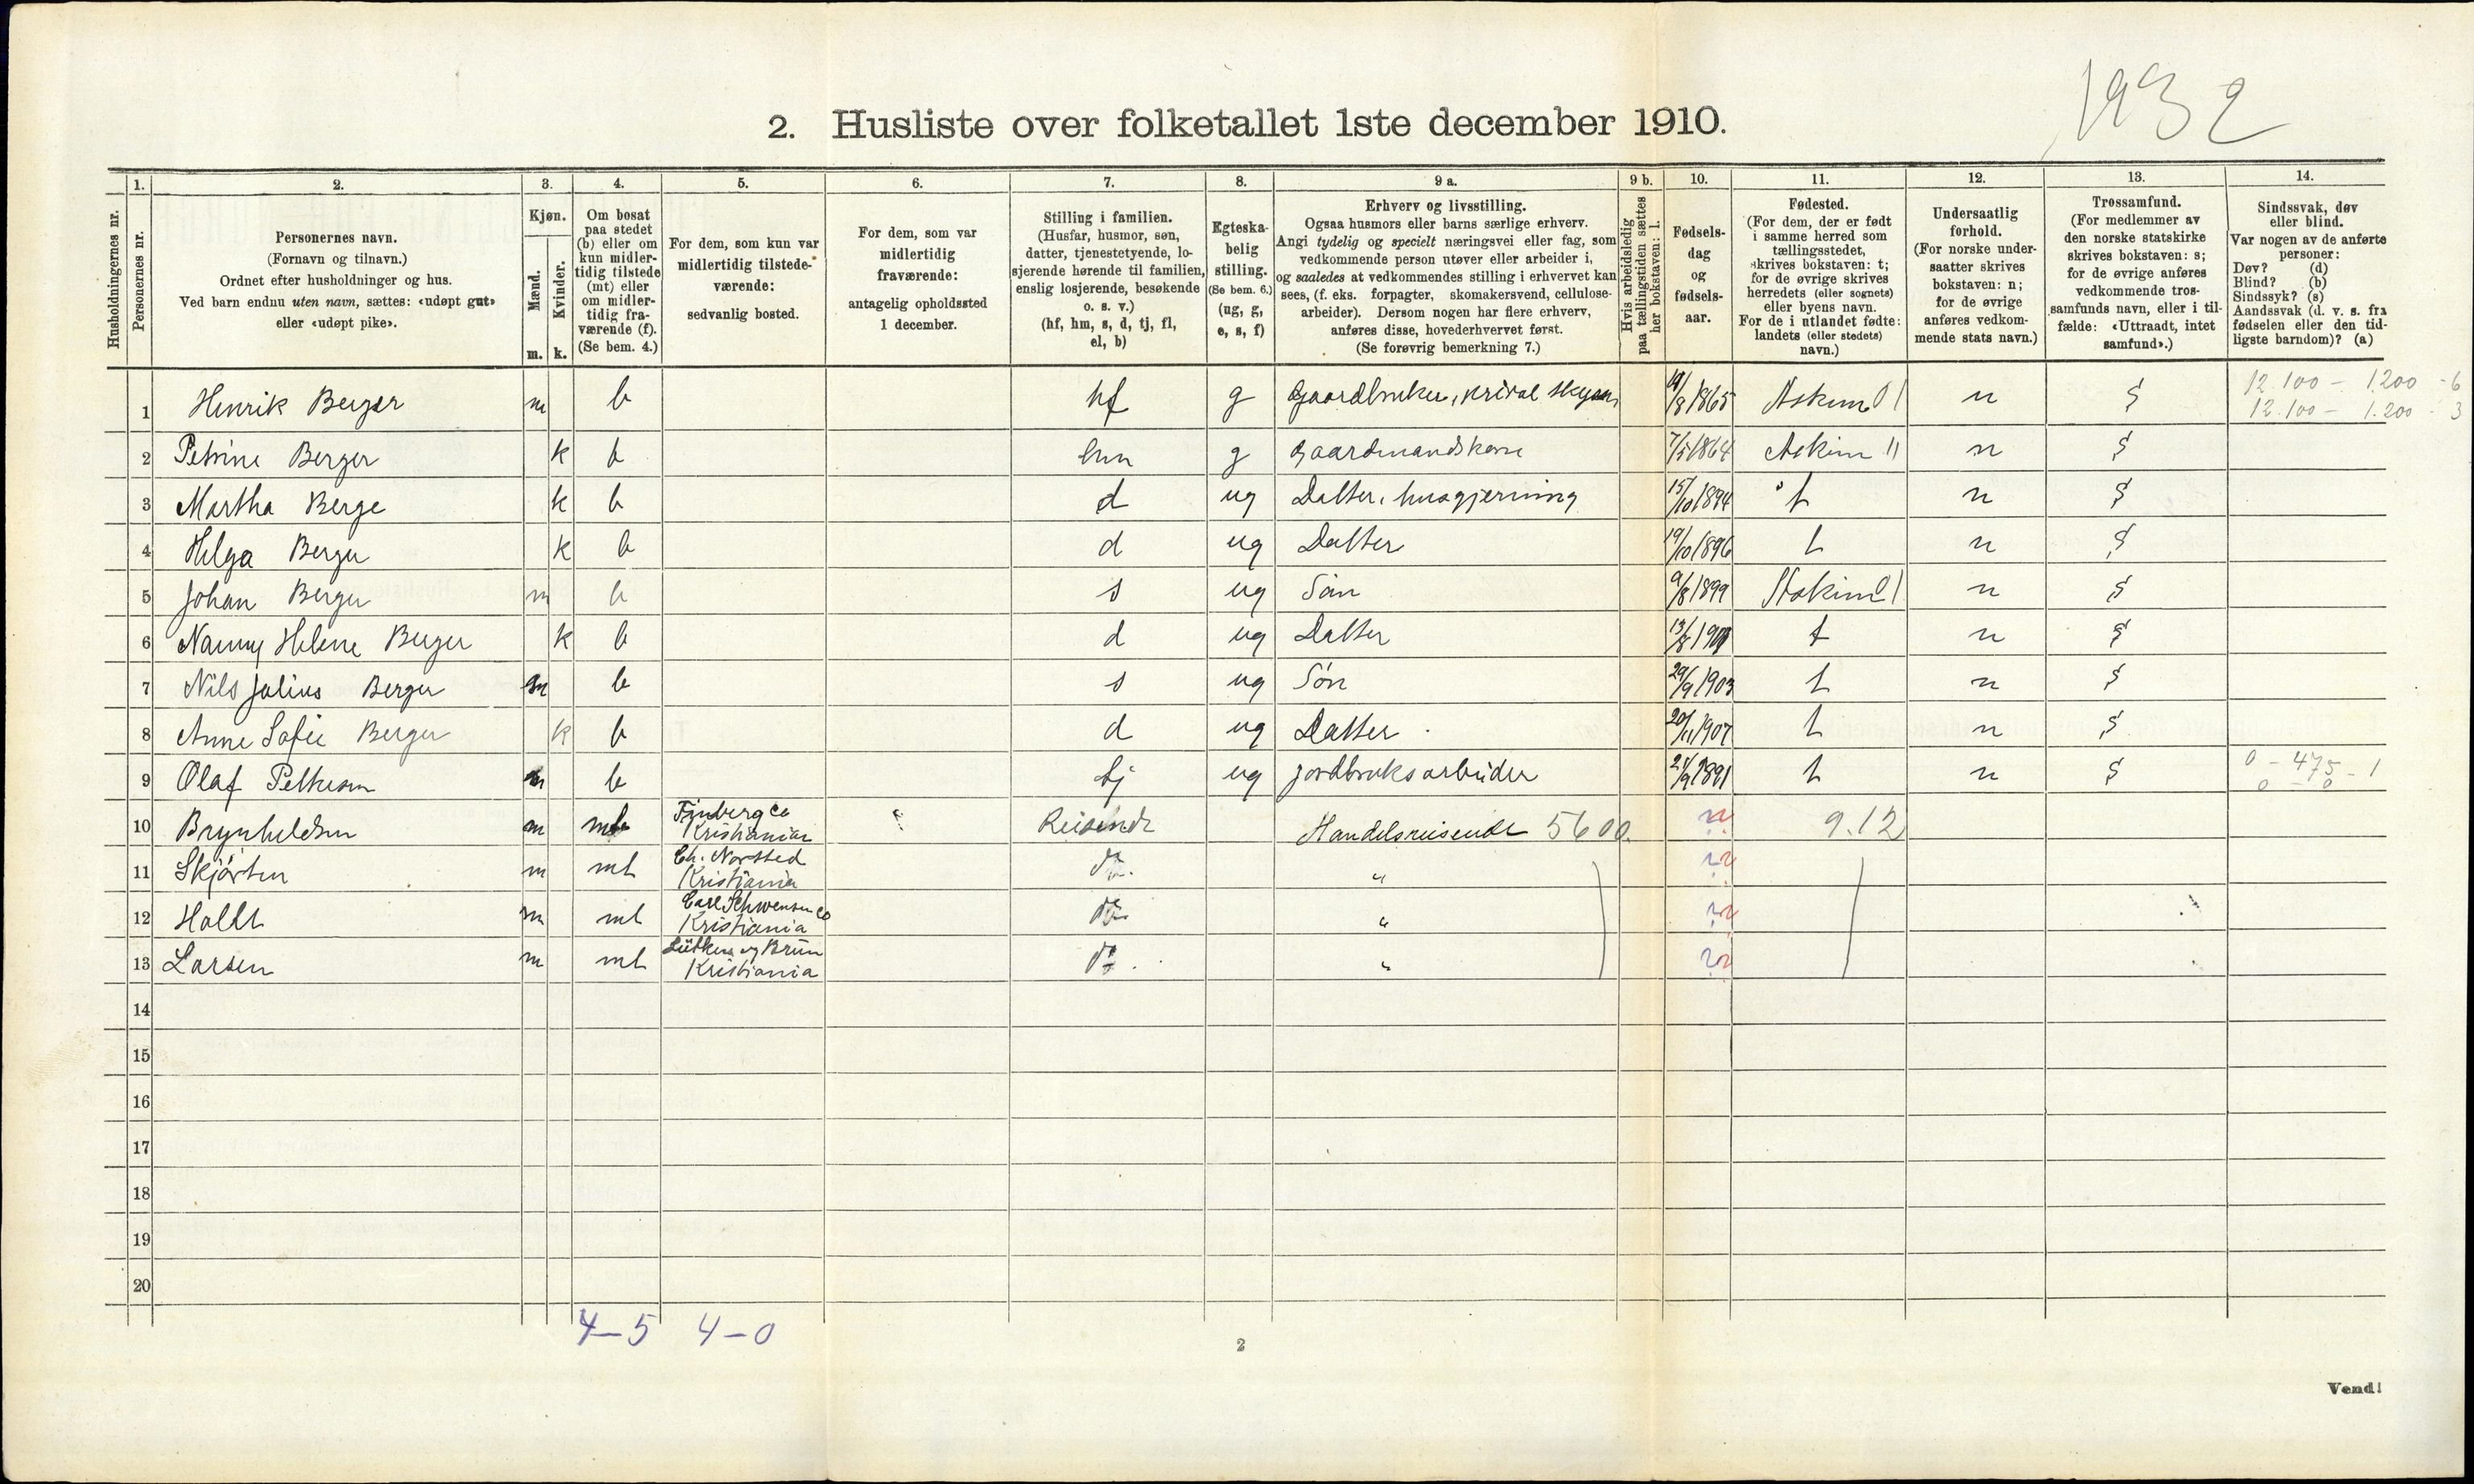 1932
2. Husliste over folketallet 1ste december 1910.
1. 2. 3. 4. 5. 6. 7. 8. 9 a. 9 b. 10. 11. 12. 13. 14.
Husholdningernes nr.
Personernes nr.
Personernes navn.
(Fornavn og tilnavn.)
Ordnet efter husholdninger og hus.
Ved barn endnu uten navn, sættes: «udøpt gut»
eller «udøpt pike».
Kjøn.
Mænd.
Kvinder.
m. k.
Om bosat
paa stedet
(b) eller om
kun midler-
tidig tilstede
(mt) eller
om midler-
tidig fra-
værende (f).
(Se bem. 4.)
For dem, som kun var
midlertidig tilstede-
værende:
sedvanlig bosted.
For dem, som var
midlertidig
fraværende:
antagelig opholdssted
1 december.
Stilling i familien.
(Husfar, husmor, søn,
datter, tjenestetyende, lo-
sjerende hørende til familien,
enslig losjerende, besøkende
o. s. v.)
(hf, hm, s, d, tj, fl,
el, b)
Egteska-
belig
stilling.
(Se bem. 6.)
(ug, g,
e, s, f)
Erhverv og livsstilling.
Ogsaa husmors eller barns særlige erhverv.
Angi tydelig og specielt næringsvei eller fag, som
vedkommende person utøver eller arbeider i,
og saaledes at vedkommendes stilling i erhvervet kan
sees, (f. eks. forpagter, skomakersvend, cellulose-
arbeider). Dersom nogen har flere erhverv,
anføres disse, hovederhvervet først.
(Se forøvrig bemerkning 7.)
Hvis arbeidsledig
paa tællingstiden sættes
her bokstaven: l.
Fødsels-
dag
og
fødsels-
aar.
Fødested.
(For dem, der er født
i samme herred som
tællingsstedet,
skrives bokstaven: t;
for de øvrige skrives
herredets (eller sognets)
eller byens navn.
For de i utlandet fødte:
landets (eller stedets)
navn.)
Undersaatlig
forhold.
(For norske under-
saatter skrives
bokstaven: n;
for de øvrige
anføres vedkom-
mende stats navn.)
Trossamfund.
(For medlemmer av
den norske statskirke
skrives bokstaven: s;
for de øvrige anføres
vedkommende tros-
samfunds navn, eller i til-
fælde: «Uttraadt, intet
samfund».)
Sindssvak, døv
eller blind.
Var nogen av de anførte
personer:
Døv? (d)
Blind? (b)
Sindssyk? (s)
Aandssvak (d. v. s. fra
fødselen eller den tid-
ligste barndom)? (a)
1 Henrik Berger m b hf g Gaardbruker, 19/8 1865 Askim 01 n s 12.100 - 1200 - 6
12.100 - 1.200 - 3
2 Petrine Berger k b hm g gaardmandskone 7/5 1864 Askim n s
3 Martha Berge k b d ug Datter, husgjerning 15/10 1894 t n s
4 Helga Berger k b d ug Datter 19/10 1896 t n s
5 Johan Berger m b s ug Sön 9/8 1899 n s
6 Nanny Helene Berger k b d ug Datter t n s
7 Nils Julius Berger m b s ug Sön 29/9 1903 t n s
8 Anne Sofie Berger k b d ug Datter 20/11 1907 t n s
9 Olaf m b tj ug jordbruksarbeider 1891 t n s 0 - 475 - 1
0 - 0
10 Brynhildsen m mt Kristiania Reisende Handelsreisende 5600. 9.12
11 Skjörten m mt Ch. Norsted
Kristiania do. "
12 Holdt m mt Carl Schwensen Co
Kristiania do. "
13 Larsen m mt Lütken og Brun
Kristiania do. "
14
15
16
17
18
19
20
4-5 4-0
2
Vend!